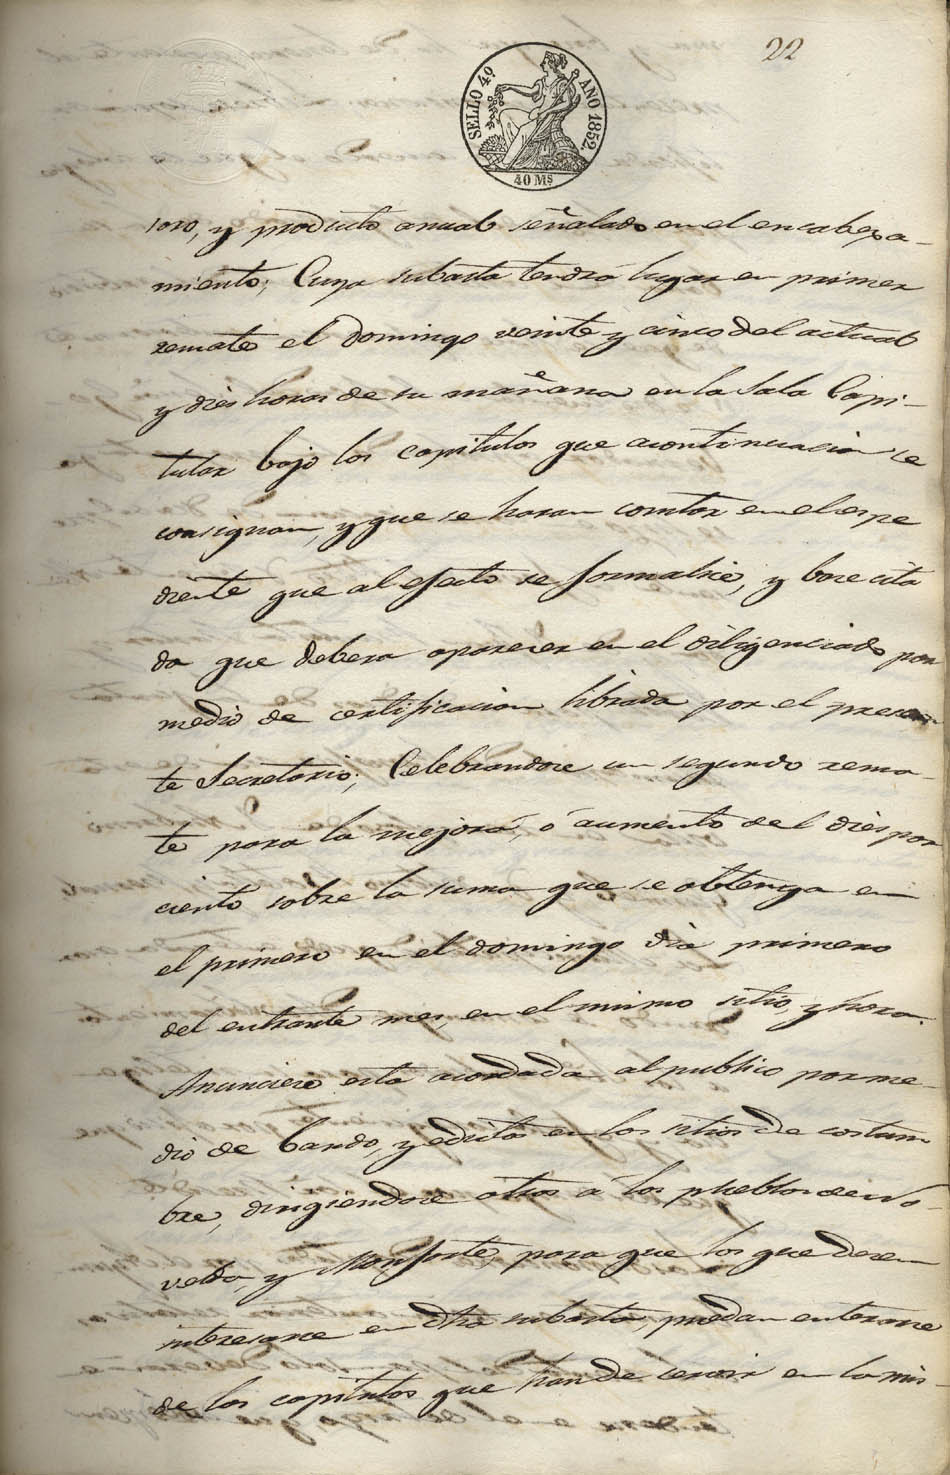 22
SELLO 4º AÑO 1852.
40 Ms
soro, y producto anual señalado en el encabeza-
miento; Cuya subasta tendrá lugar en primer
remate el domingo veinte y cinco del actual
y dies horas de su mañana en la Sala Capi-
tular bajo los capitulos que acontinuacion se
consignan, y que se haran constar en el espe
diente que al efecto se formalise, y bore cita
da que debera aparecer en el diligenciado por
medio de certificacion librada por el presen
te Secretario; Celebrandose un segundo rema-
te para la mejora, ó aumento del dies por
ciento sobre la suma que se obtenga en
el primero en el domingo dia primero
del entrante mes, en el mismo sitio, y hora.
Anunciese esta acordada al publico por me-
dio de bando, y edictos en los sitios de costum
bre, dirigiendose otros á los pueblos de No-
velda, y Monforte, para que los que deseen
interesarse en dha subasta, puedan enterarse
de los capitulos que han de servir en la mis-